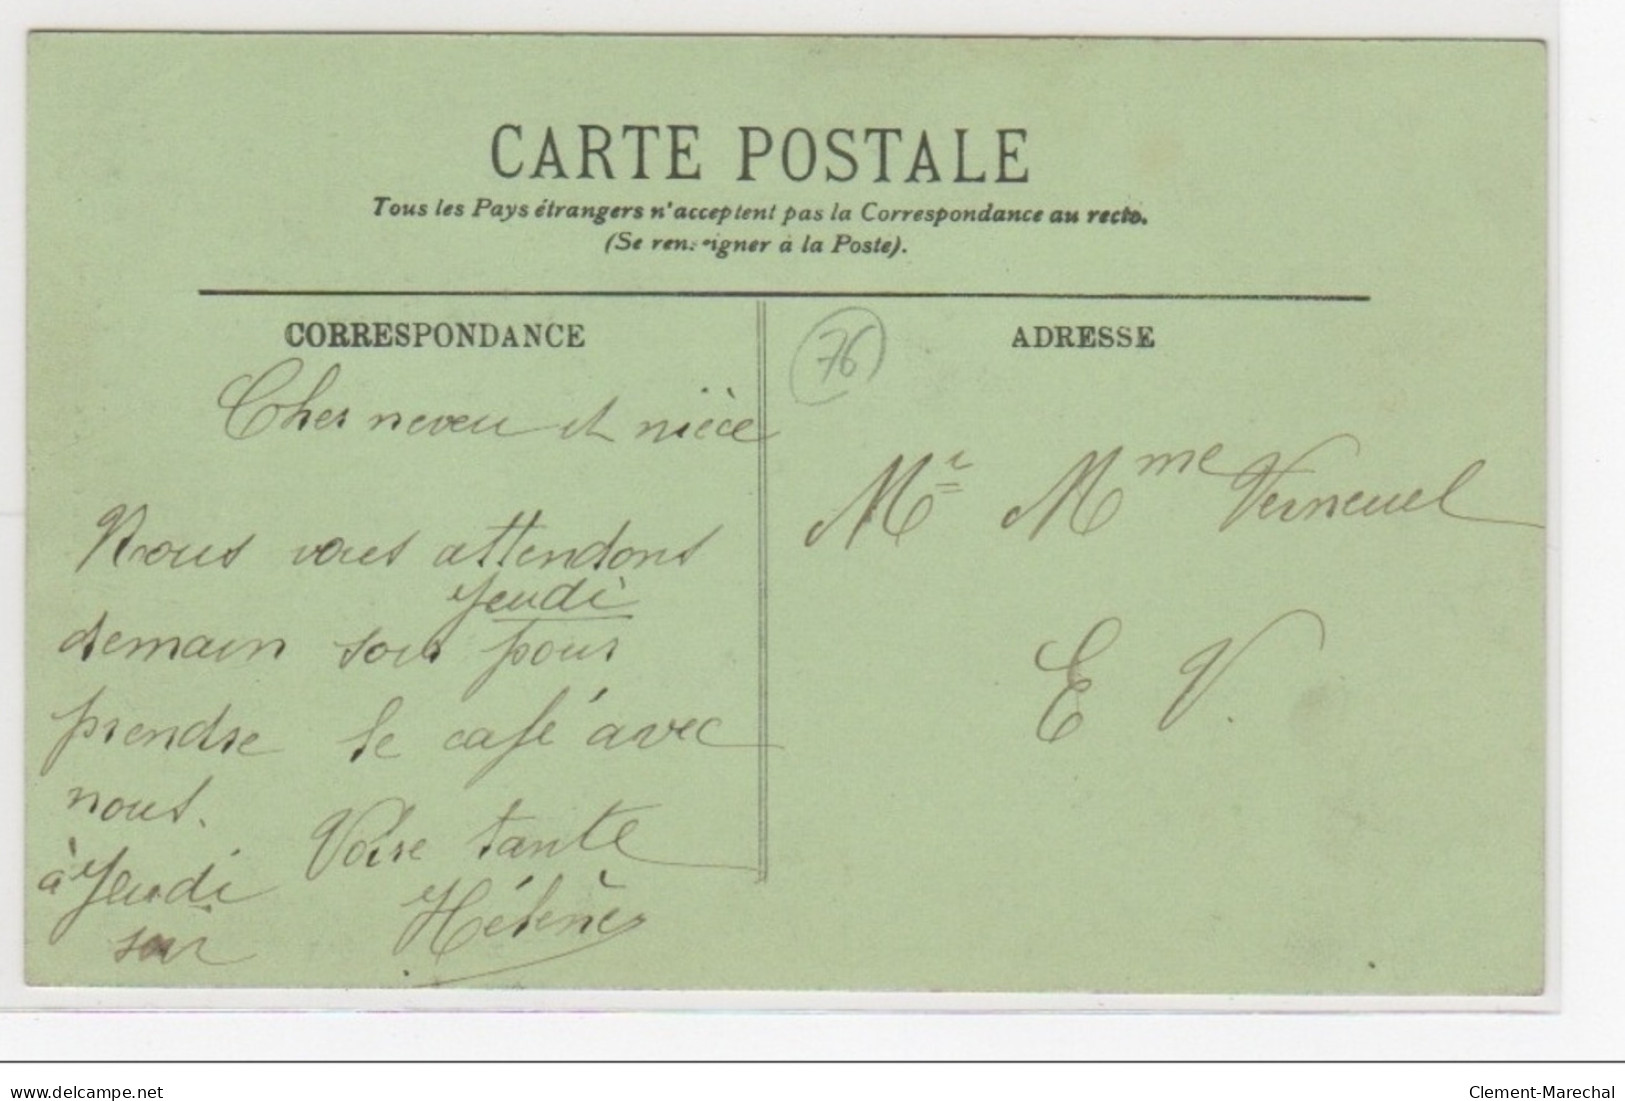 CARTE POSTALE
Tous les Pays étrangers n'acceptent pas la Correspondance au recto.
(Se renseigner à la Poste).
CORRESPONDANCE
Cher neveu et nièce
Nous vous attendons
jeudi
demain soir pour
prendre le café avec
nous.
à jeudi
soir
Votre tante
Hélène
76
ADRESSE
Mr Mme Verneuel
E V.
delcampe.net
Clement-Marechal